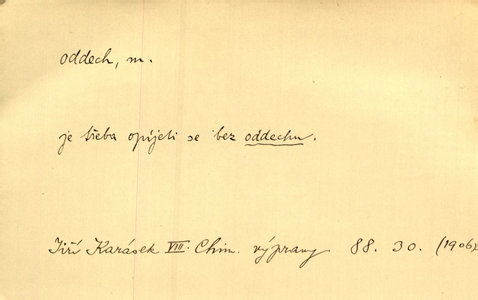 oddech, m.
je třeba opíjeti se bez oddechu.
Jiří Karásek VIII. Chim. výpravy 88. 30. (1906)